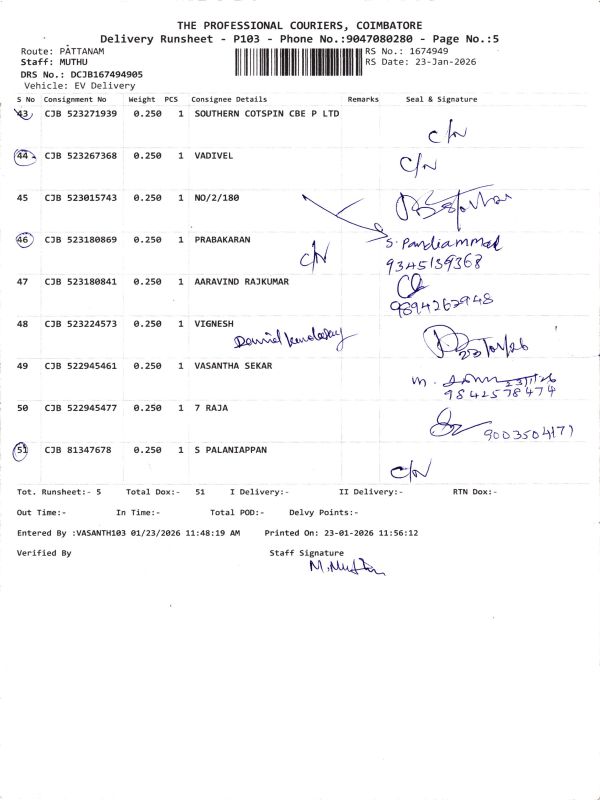 THE PROFESSIONAL COURIERS, COIMBATORE
Delivery Runsheet - P103 - Phone No.:9047080280 - Page No.:5
Route: PATTANAM RS No.: 1674949
Staff: MUTHU RS Date: 23-Jan-2026
DRS No.: DCJB167494905
Vehicle: EV Delivery
S No Consignment No Weight PCS Consignee Details Remarks Seal & Signature
43 CJB 523271939 0.250 1 SOUTHERN COTSPIN CBE P LTD
C/N
44 CJB 523267368 0.250 1 VADIVEL
C/N
45 CJB 523015743 0.250 1 NO/2/180
46 CJB 523180869 0.250 1 PRABAKARAN
C/N
S. Pandiammal
9345139368
47 CJB 523180841 0.250 1 AARAVIND RAJKUMAR
9894262948
48 CJB 523224573 0.250 1 VIGNESH
23/01/26
49 CJB 522945461 0.250 1 VASANTHA SEKAR
23/1/26
9842578474
50 CJB 522945477 0.250 1 7 RAJA
9003504171
51 CJB 81347678 0.250 1 S PALANIAPPAN
C/N
Tot. Runsheet:- 5 Total Dox:- 51 I Delivery:- II Delivery:- RTN Dox:-
Out Time:- In Time:- Total POD:- Delvy Points:-
Entered By :VASANTH103 01/23/2026 11:48:19 AM Printed On: 23-01-2026 11:56:12
Verified By Staff Signature
M. Muthu